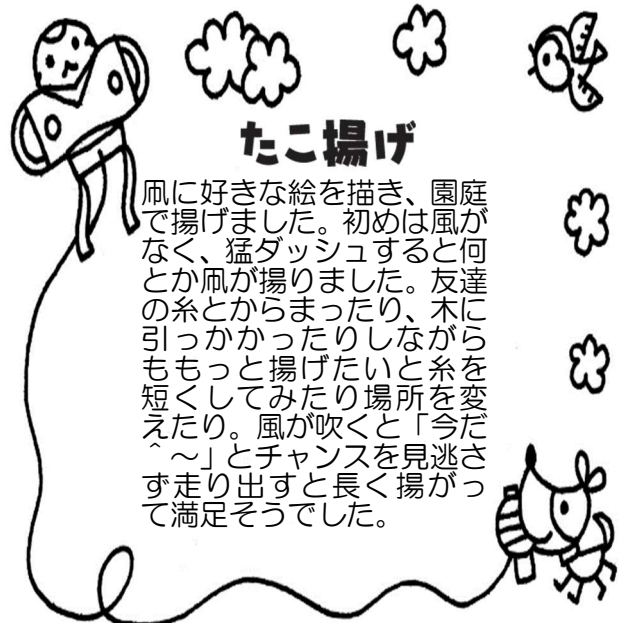 たこ揚げ
凧に好きな絵を描き、園庭
で揚げました。初めは風が
なく、猛ダッシュすると何
とか凧が揚りました。友達
の糸とからまったり、木に
引っかかったりしながら
ももっと揚げたいと糸を
短くしてみたり場所を変
えたり。風が吹くと「今だ
＾～」とチャンスを見逃さ
ず走り出すと長く揚がっ
て満足そうでした。